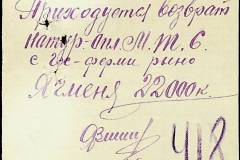 Приходуется возврат
натур-опл. М.Т.С.
с гус-ферми рыно
Ячменя 22000к.
418